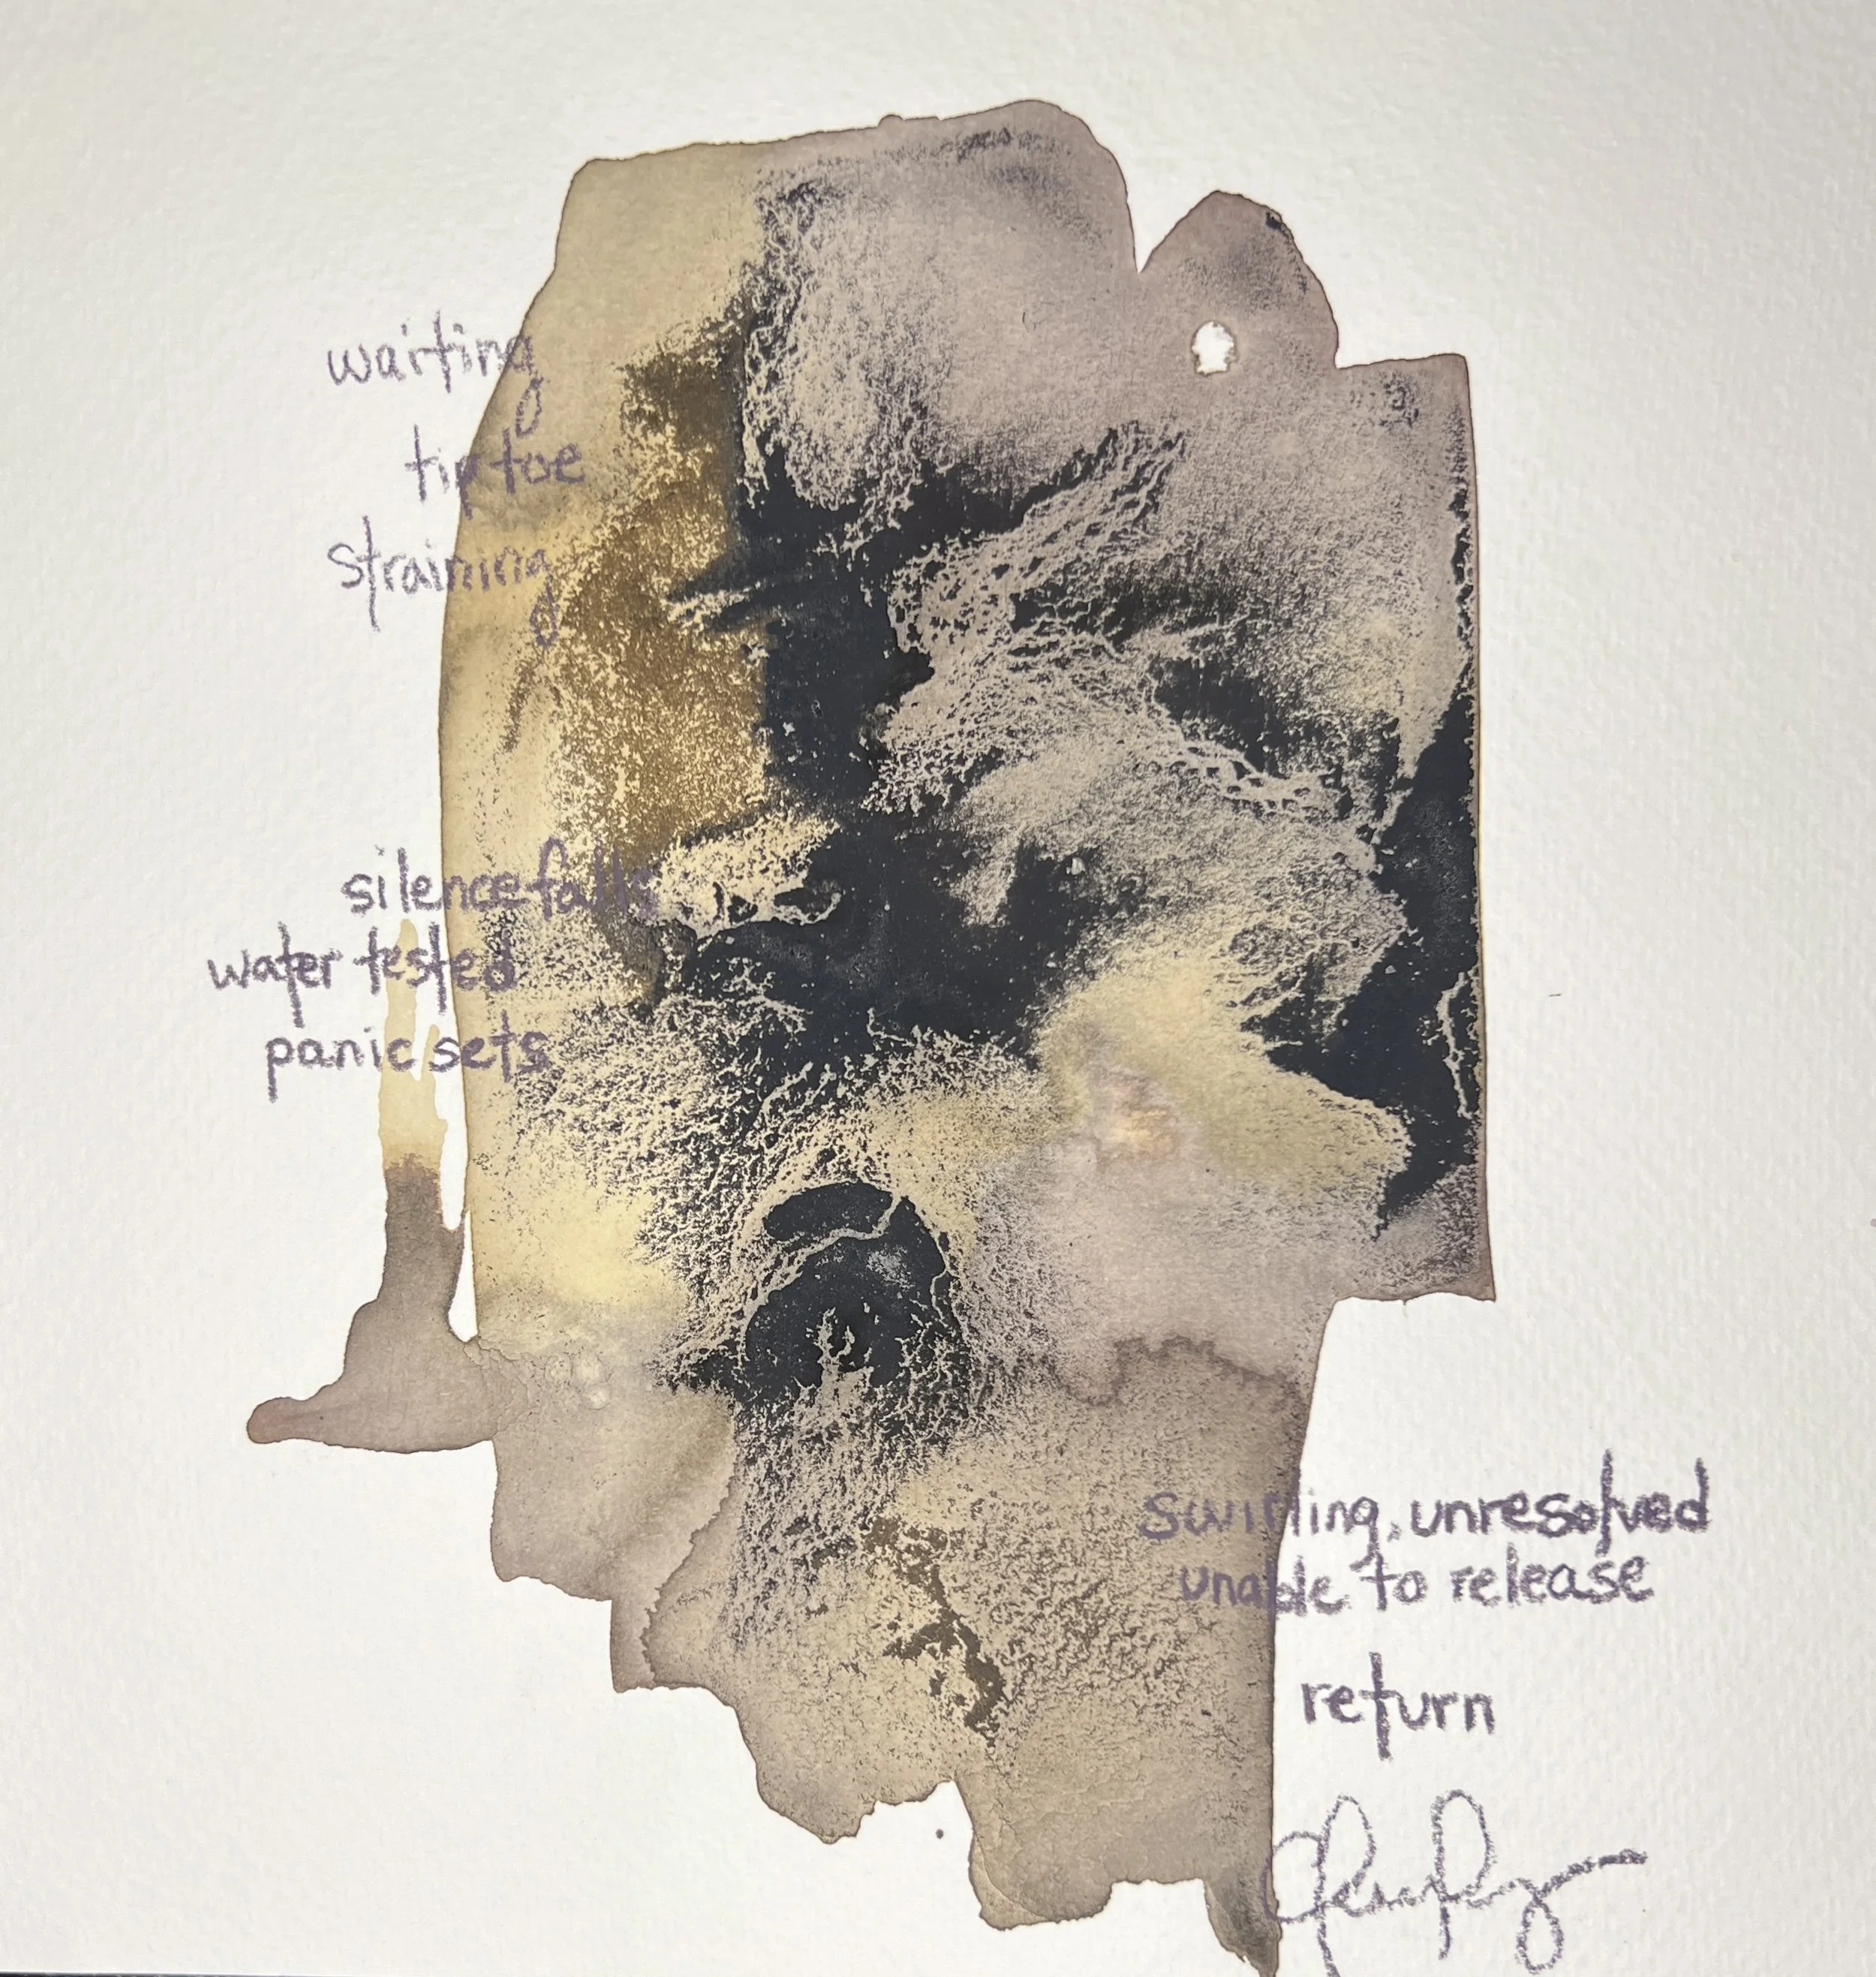 waiting
tiptoe
straining
silence falls
water tested
panic sets
swirling, unresolved
unable to release
return